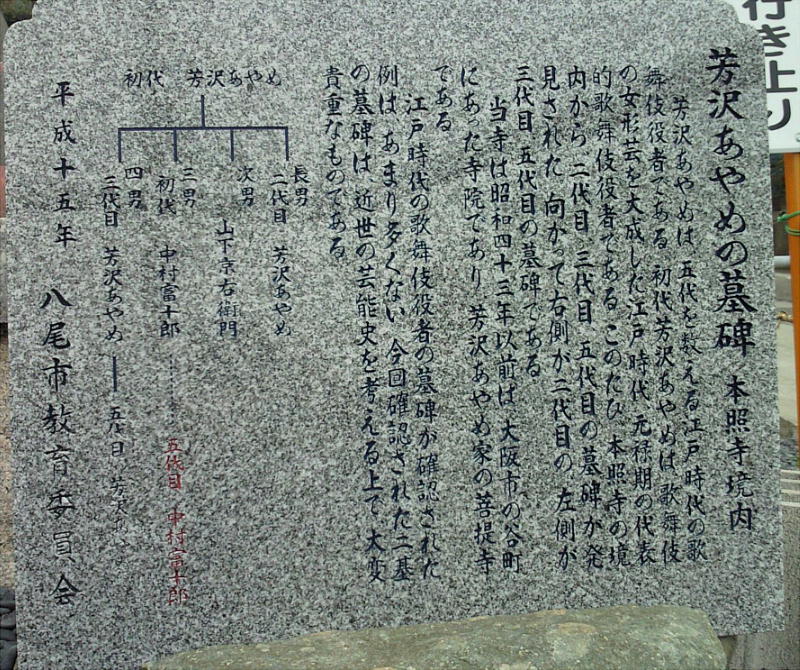 芳沢あやめの墓碑 本照寺境内
芳沢あやめは 五代を数える江戸時代の歌
舞伎役者である 初代芳沢あやめは歌舞伎
の女形芸を大成した江戸時代 元禄期の代表
的歌舞伎役者である このたび 本照寺の境
内から 二代目 三代目 五代目の墓碑が発
見された 向かって右側が二代目の 左側が
三代目 五代目の墓碑である
当寺は昭和四十三年以前は 大阪市の谷町
にあった寺院であり 芳沢あやめ家の菩提寺
である
江戸時代の歌舞伎役者の墓碑が確認された
例は あまり多くない 今回確認された二基
の墓碑は 近世の芸能史を考える上で 大変
貴重なものである
初代 芳沢あやめ
長男
二代目 芳沢あやめ
次男
山下京右衛門
三男
初代 中村富十郎
五代目 中村富十郎
四男
三代目 芳沢あやめ
五代目 芳沢あ
平成十五年 八尾市教育委員会
行き止り